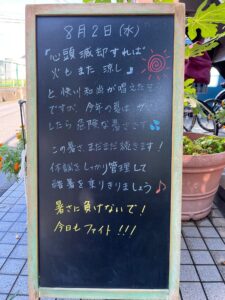 8月2日(水)
『心頭滅却すれば
火もまた涼し』
と快川和尚が唱えた
ですが、今年の暑さは
したら危険な暑さです
この暑さまだまだ続きます!
体調をしっかり管理して
酷暑を乗りきりましょう♪
暑さに負けないで!
今日もファイト!!!